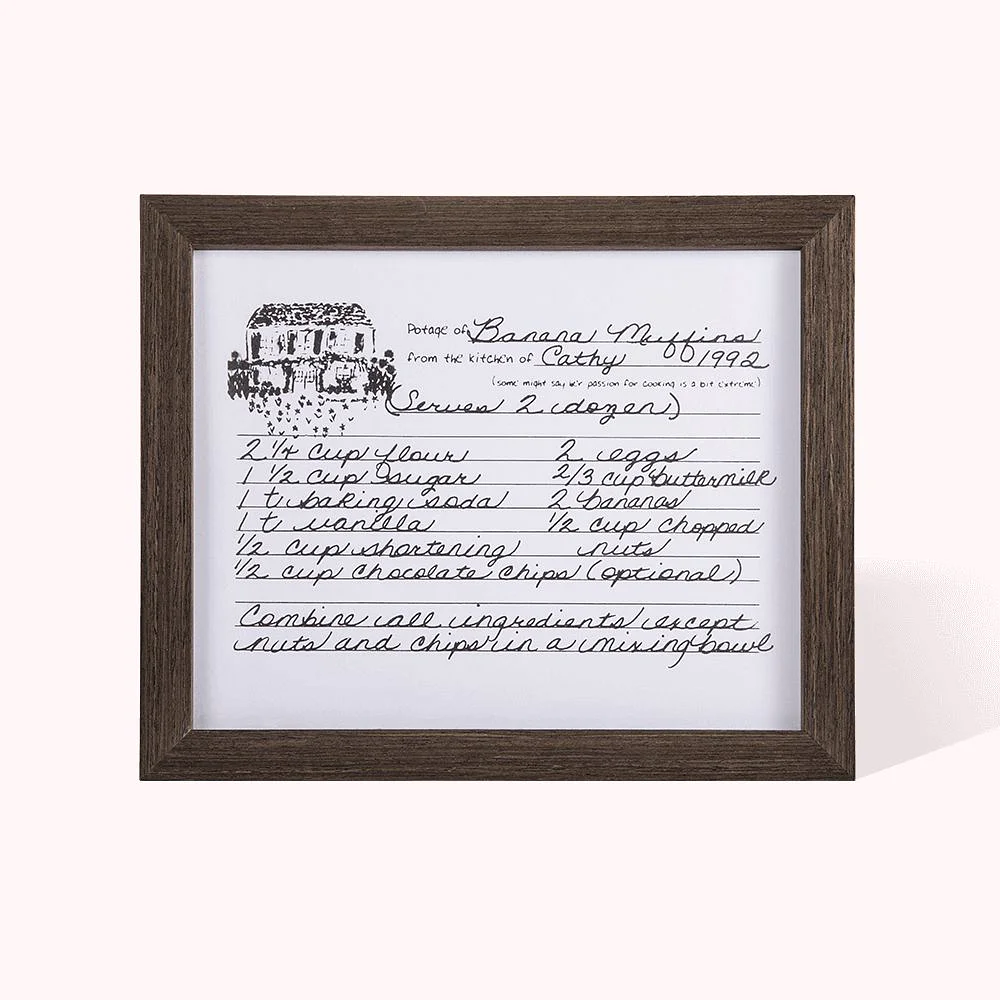 Potage of Banana Muffins
from the kitchen of Cathy 1992
(some might say her passion for cooking is a bit extreme)
(Serves 2 dozen)
2 1/4 cup flour 2 eggs
1 1/2 cup sugar 2/3 cup buttermilk
1 t baking soda 2 bananas
1 t vanilla 1/2 cup chopped
1/2 cup shortening nuts
1/2 cup chocolate chips (optional)
Combine all ingredients except
nuts and chips in a mixing bowl